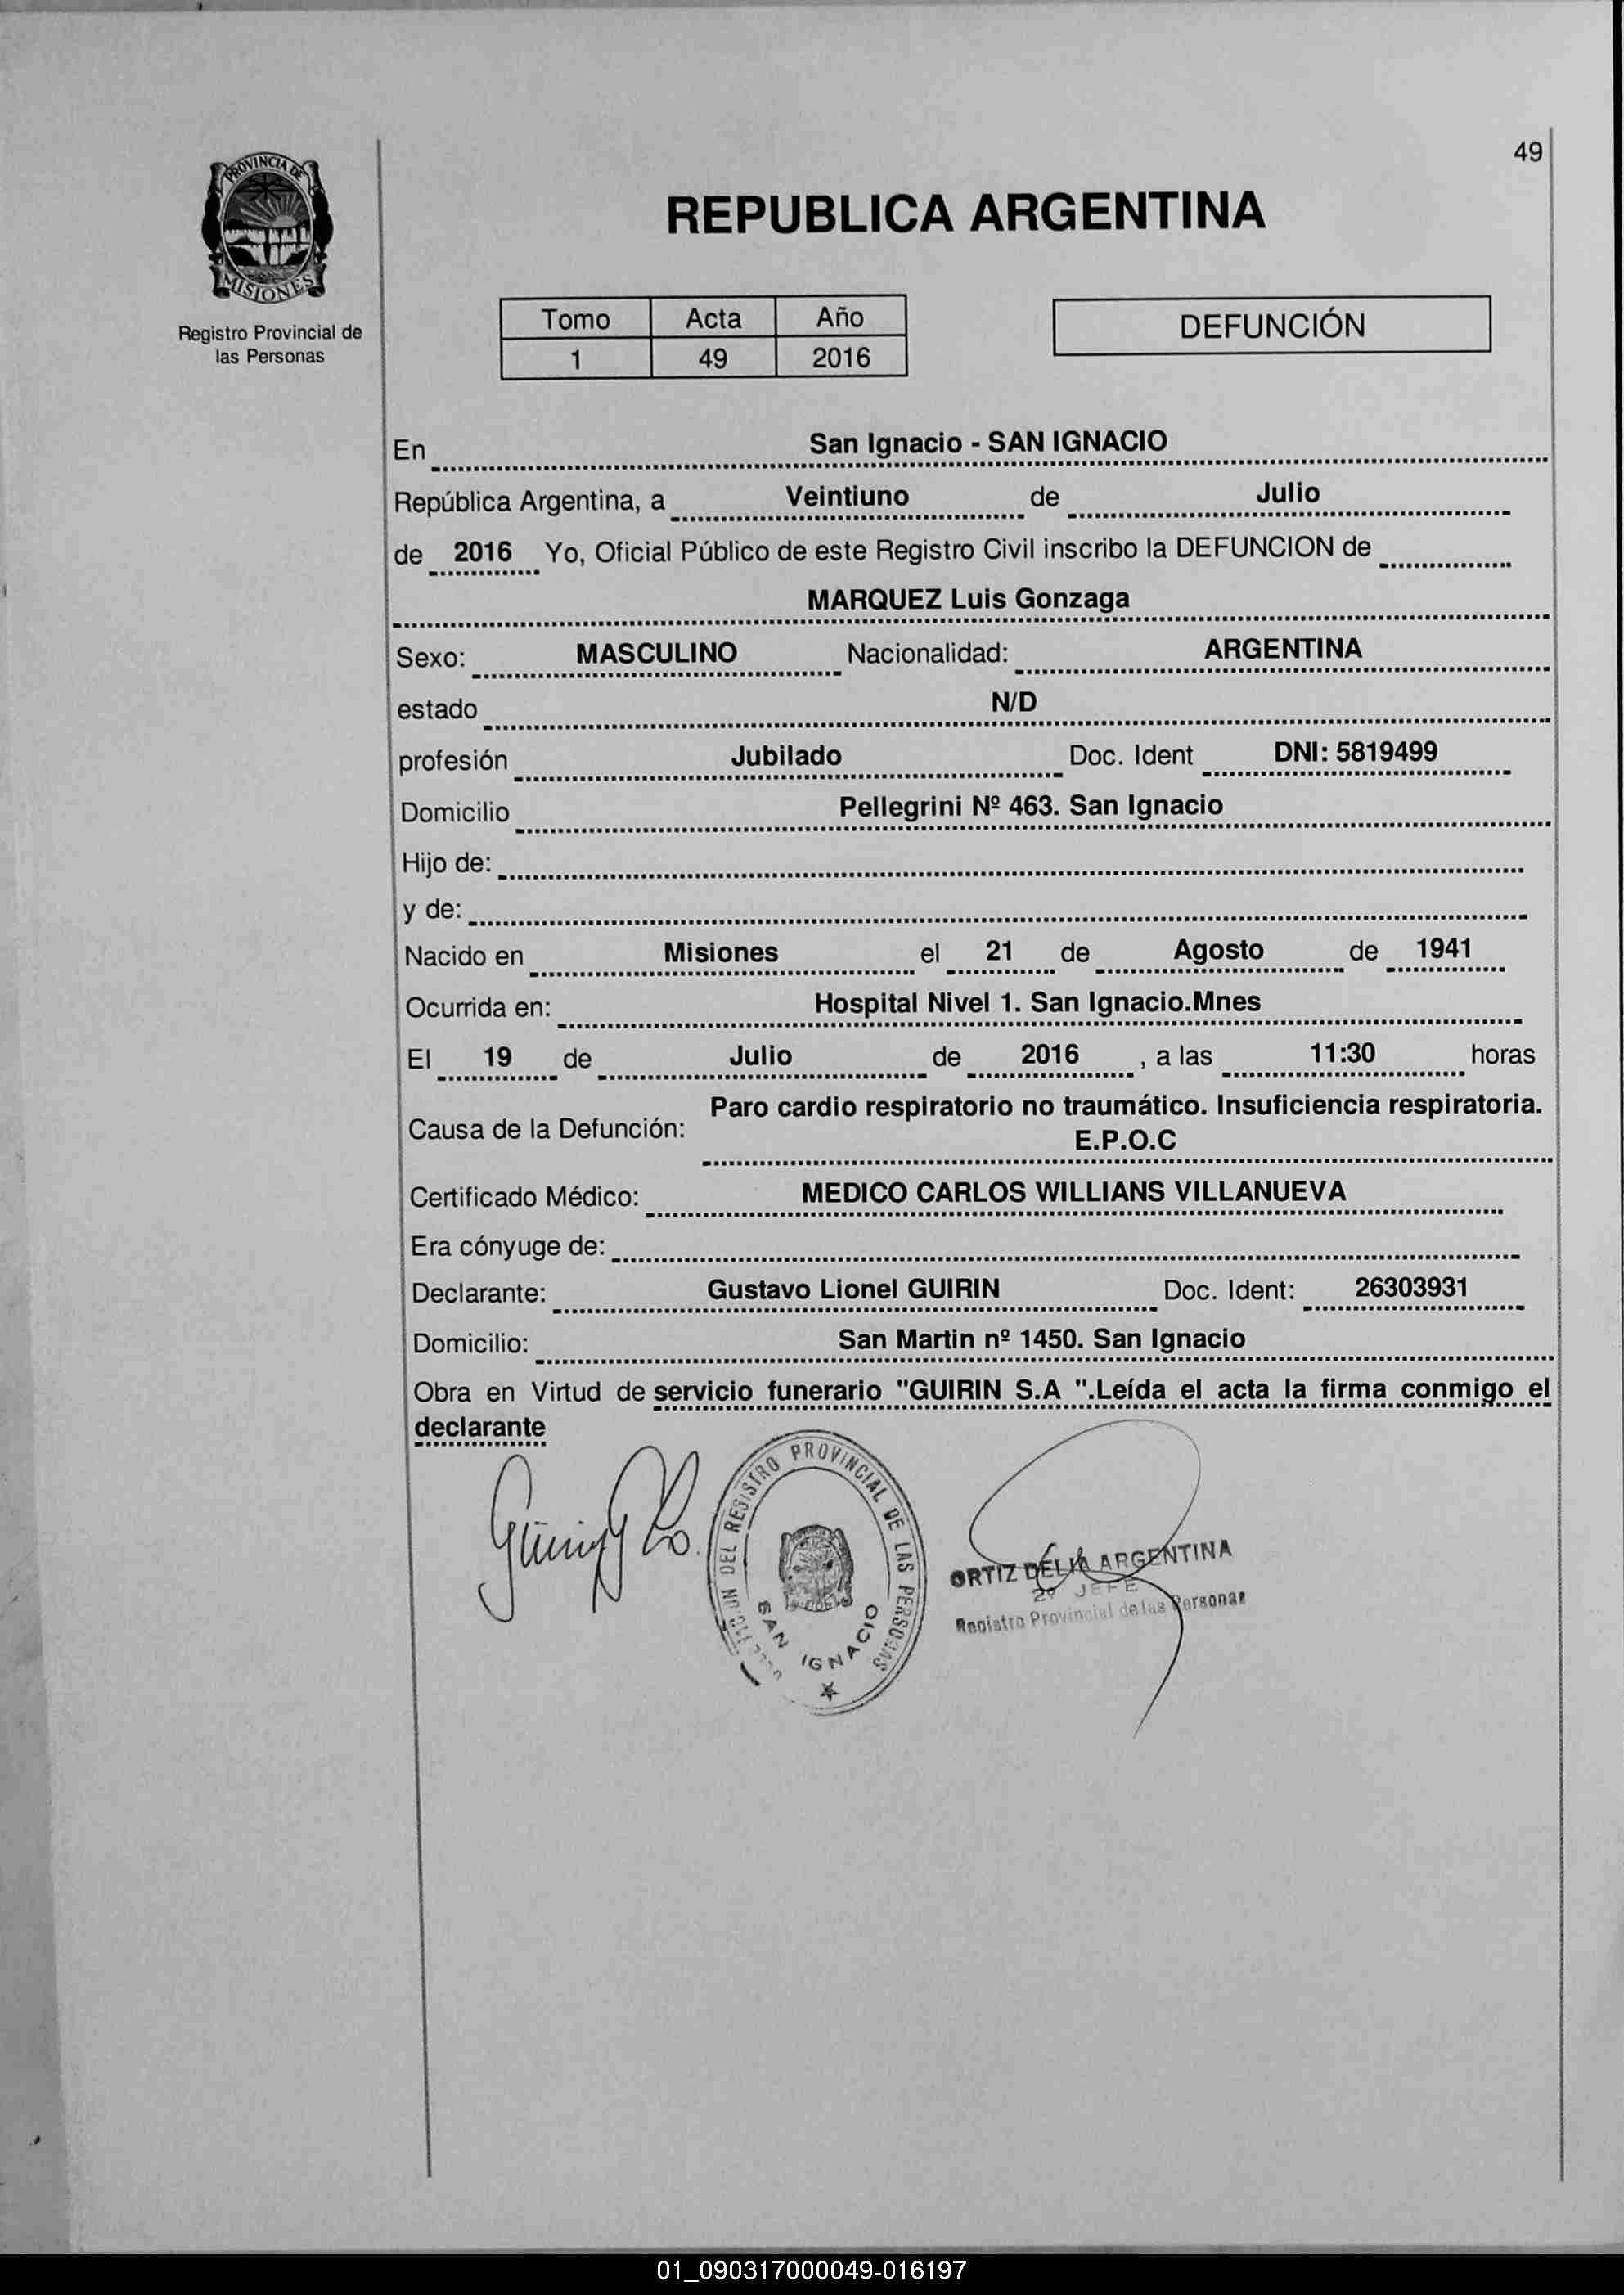 49
PROVINCIA DE
MISIONES
Registro Provincial de
las Personas
REPUBLICA ARGENTINA
Tomo Acta Año
1 49 2016
DEFUNCIÓN
En San Ignacio - SAN IGNACIO
República Argentina, a Veintiuno de Julio
de 2016 Yo, Oficial Público de este Registro Civil inscribo la DEFUNCION de
MARQUEZ Luis Gonzaga
Sexo: MASCULINO Nacionalidad: ARGENTINA
estado N/D
profesión Jubilado Doc. Ident DNI: 5819499
Domicilio Pellegrini Nº 463. San Ignacio
Hijo de:
y de:
Nacido en Misiones el 21 de Agosto de 1941
Ocurrida en: Hospital Nivel 1. San Ignacio.Mnes
El 19 de Julio de 2016 , a las 11:30 horas
Causa de la Defunción: Paro cardio respiratorio no traumático. Insuficiencia respiratoria.
E.P.O.C
Certificado Médico: MEDICO CARLOS WILLIANS VILLANUEVA
Era cónyuge de:
Declarante: Gustavo Lionel GUIRIN Doc. Ident: 26303931
Domicilio: San Martin nº 1450. San Ignacio
Obra en Virtud de servicio funerario "GUIRIN S.A ".Leída el acta la firma conmigo el
declarante
DEL REGISTRO PROVINCIAL DE LAS PERSONAS
SAN IGNACIO
ORTIZ DELIA ARGENTINA
2º JEFE
Registro Provincial de las Personas
01_090317000049-016197